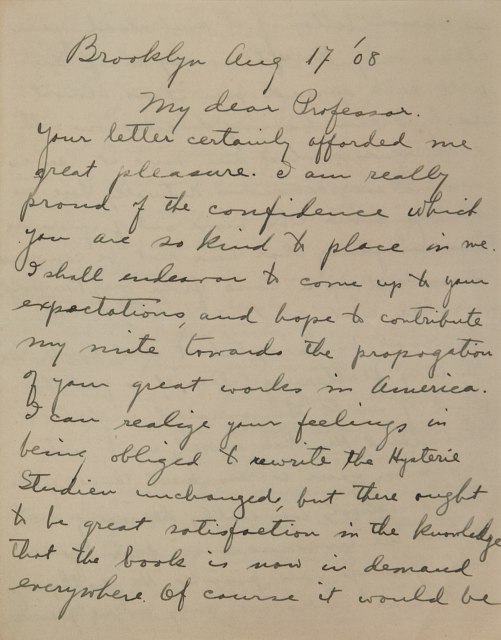 Brooklyn Aug 17 '08
My dear Professor.
Your letter certainly afforded me
great pleasure. I am really
proud of the confidence which
you are so kind to place in me.
I shall endeavor to come up to your
expectations, and hope to contribute
my mite towards the propogation
of your great works in America.
I can realize your feelings in
being obliged to rewrite the Hysterie
Studien unchanged, but there ought
to be great satisfaction in the knowledge
that the book is now in demand
everywhere. Of course it would be